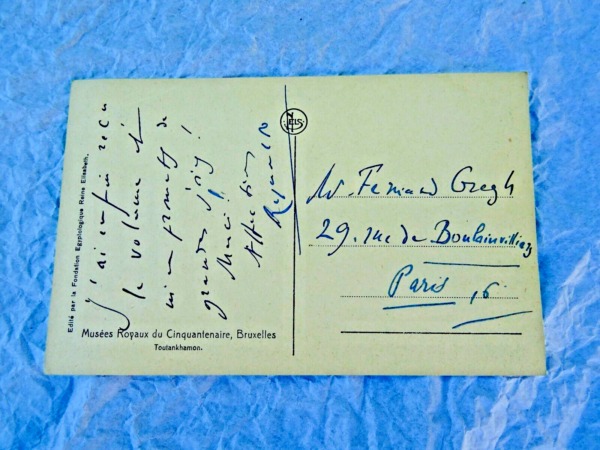 J'ai enfin reçu
le volume et
m'en promets de
grandes joies !
Merci !
Affection
NELS
M. Fernand Gregh
29. rue de Boulainvilliers
Paris 16
Edité par la Fondation Egyptologique Reine Elisabeth.
Musées Royaux du Cinquantenaire, Bruxelles
Toutankhamon.